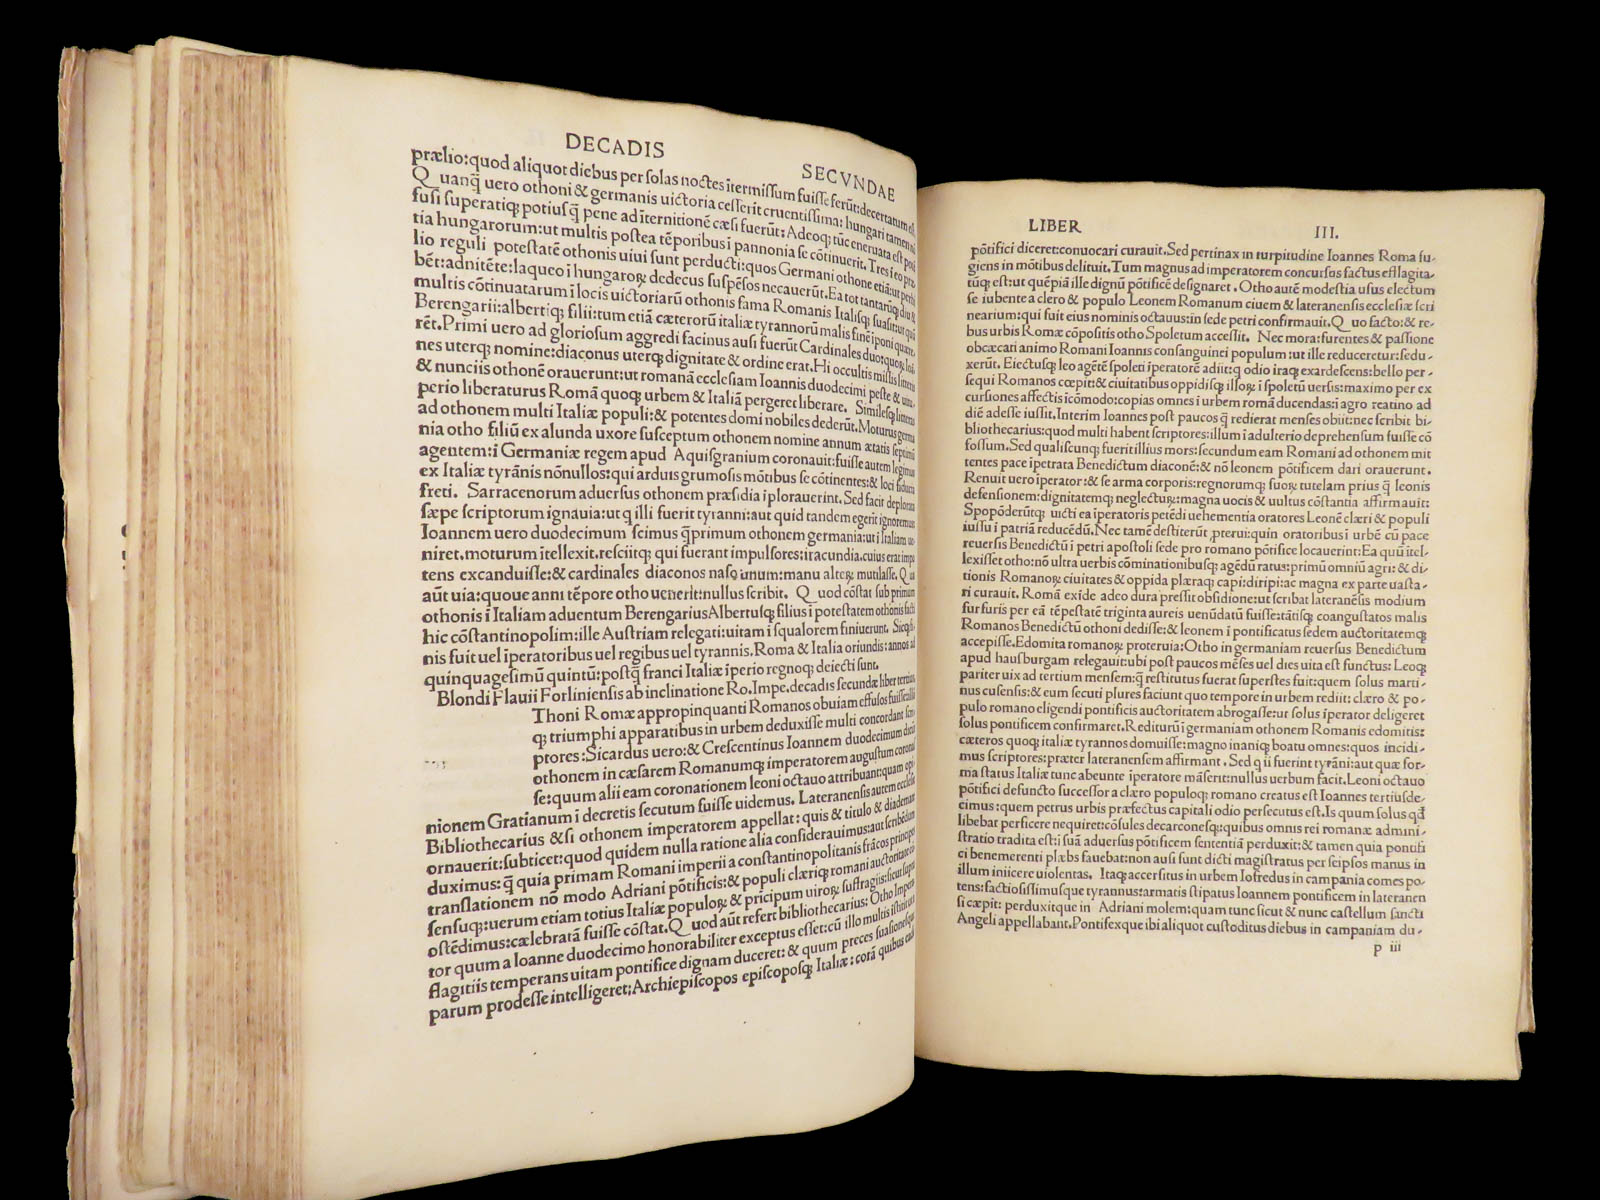 DECADIS SECVNDAE
prælio:quod aliquot diebus per ſolas noctes ītermiſſum fuiſſe ferūt:decertatum
Quanq̄ uero othoni & germanis uictoria ceſſerit cruentiſſima: hungari tamen
fuſi ſuperatiq; potiuſq̄ pene ad īternitionē cæſi fuerūt: Adeoq; tūc eneruata eſt
tia hungarorum:ut multis poſtea tēporibus ī pannonia ſe cōtinuerit. Tres
lio reguli poteſtatē othonis uiui ſunt perducti:quos Germani othone etiā
bēt:adnitēte:laqueo ī hungaroꝝ dedecus ſuſpēſos necauerūt. Ea tot tantarūq; diu &
multis cōtinuatarum ī locis uictoriarū othonis fama Romanis Italiſq; ſuaſit:ut
Berengarii:albertiq; filii:tum etiā cæterorū italiæ tyrannorū malis finē īponi
rēt. Primi uero ad glorioſum aggredi facinus auſi fuerūt Cardinales duo:
nes uterq; nomine:diaconus uterq; dignitate & ordine erat. Hi occultis miſſis
& nunciis othonē orauerunt:ut romanā eccleſiam Ioannis duodecimi peſte &
perio liberaturus Romā quoq; urbem & Italiā pergeret liberare. Similesq;
ad othonem multi Italiæ populi:& potentes domi nobiles dederūt. Moturus
nia otho filiū ex alunda uxore ſuſceptum othonem nomine annum ætatis
agentem:ī Germaniæ regem apud Aquiſgranium coronauit:fuiſſe autem legimus
ex Italiæ tyrānis nōnullos:qui arduis grumoſis mōtibus ſe cōtinentes:& loci
freti. Sarracenorum aduerſus othonem præſidia īplorauerint. Sed facit deplorata
ſæpe ſcriptorum ignauia:ut q illi fuerit tyranni:aut quid tandem egerit ignoremus
Ioannem uero duodecimum ſcimus q̄primum othonem germania:ut ī Italiam
niret.moturum ītellexit.reſciitq; qui fuerant impulſores:iracundia.cuius erat
tens excanduiſſe:& cardinales diaconos naſo unum:manu alteꝝ mutilaſſe.
aūt uia:quoue anni tēpore otho uenerit:nullus ſcribit. Quod cōſtat ſub primum
othonis ī Italiam aduentum BerengariusAlbertuſq; filius ī poteſtatem othonis
hic cōſtantinopolim:ille Auſtriam relegati:uitam ī ſqualorem finierunt.
nis fuit uel īperatoribus uel regibus uel tyrannis.Roma & Italia oriundis:annos ad
quinquageſimū quintū:poſtq̄ franci Italiæ īperio regnoq; deiecti ſunt.
Blondi Flauii Forliniensis ab inclinatione Ro.Impe.decadis ſecundæ liber tertius.
Thoni Romæ appropinquanti Romanos obuiam effuſos fuiſſe:
q; triumphi apparatibus in urbem deduxiſſe multi concordant
ptores:Sicardus uero:& Creſcentinus Ioannem duodecimum
othonem in cæſarem Romanumq; imperatorem auguſtum
ſe:quum alii eam coronationem leoni octauo attribuant:quam
nionem Gratianum ī decretis ſecutum fuiſſe uidemus. Lateranenſis autem
Bibliothecarius & ſi othonem imperatorem appellat: quis & titulo &
ornauerit:ſubticet:quod quidem nulla ratione alia conſiderauimus:aut
duximus:q̄ quia primam Romani imperii a conſtantinopolitanis frācos
tranſlationem nō modo Adriani pōtificis:& populi clæriq; romani auctoritate
ſenſuq;:uerum etiam totius Italiæ populoꝝ & pricipum uiroꝝ ſuffragiis:
oſtēdimus:cælebratā fuiſſe cōſtat.Quod aūt refert bibliothecarius: Otho
tor quum a Ioanne duodecimo honorabiliter exceptus eſſet:cū illo multis
flagitiis temperans uitam pontifice dignam duceret: & quum preces
parum prodeſſe intelligeret:Archiepiſcopos epiſcopoſq; Italiæ: corā quibus
LIBER III.
pōtifici diceret:conuocari curauit.Sed pertinax in turpitudine Ioannes Roma fu-
giens in mōtibus delituit.Tum magnus ad imperatorem concurſus factus eſt.flagita-
tūq; eſt:ut quēpiā ille dignū pōtificē deſignaret. Otho autē modeſtia uſus electum
ſe iubente a clero & populo Leonem Romanum ciuem & lateranenſis eccleſiæ ſcri
nearium:qui fuit eius nominis octauus:in ſede petri confirmauit.Quo facto:& re-
bus urbis Romæ cōpoſitis otho Spoletum acceſſit. Nec mora:furentes & paſſione
obcæcari animo Romani Ioannis conſanguinei populum:ut ille reduceretur:ſedu-
xerūt. Eiectuſq; leo agētē ſpoleti īperatorē adiit:q odio iraq; exardeſcens:bello per-
ſequi Romanos cœpit:& ciuitatibus oppidiſq; illoꝝ ī ſpoletū uerſis:maximo per ex
curſiones affectis īcōmodo:copias omnes ī urbem romā ducendas:ī agro reatino ad
diē adeſſe iuſſit.Interim Ioannes poſt paucos q̄ redierat menſes obiit:nec ſcribit bi-
bliothecarius:quod multi habent ſcriptores:illum ī adulterio deprehenſum fuiſſe cō
foſſum.Sed qualiſcunq; fuerit illius mors:ſecundum eam Romani ad othonem mit
tentes pace īpetrata Benedictum diaconē:& nō leonem pōtificem dari orauerunt.
Renuit uero īperator:& ſe arma corporis:regnorumq; ſuoꝝ tutelam prius q̄ leonis
defenſionem:dignitatemq; neglectuꝝ:magna uocis & uultus cōſtantia affirmauit:
Spopōderūtq; uicti ea īperatoris petēdi uehementia oratores Leonē clæri & populi
iuſſu ī patriā reducēdū.Nec tamē deſtiterūt ꝓterui:quin oratoribus ī urbē cū pace
reuerſis Benedictū ī petri apoſtoli ſede pro romano pōtifice locauerint:Ea quū itel-
lexiſſet otho:nō ultra uerbis cōminationibuſq; agēdū ratus:primū omniū agri:& di-
tionis Romanoꝝ ciuitates & oppida plæraq; capi:diripi:ac magna ex parte uaſta-
ri curauit. Romā exīde adeo dura preſſit obſidione:ut ſcribat lateranēſis modium
furfuris per eā tēpeſtatē triginta aureis uenūdatū fuiſſe:tātiſq; coanguſtatos malis
Romanos Benedictū othoni dediſſe:& leonem ī pontificatus ſedem auctoritatemq;
accepiſſe.Edomita romanoꝝ proteruia:Otho in germaniam reuerſus Benedictum
apud hauſburgam relegauit:ubi poſt paucos mēſes uel dies uita eſt functus: Leoq;
pariter uix ad tertium menſem:q̄ reſtitutus fuerat ſuperſtes fuit:quem ſolus marti-
nus cuſenſis:& eum ſecuti plures faciunt quo tempore in urbem rediit: clæro & po-
pulo romano eligendi pontificis auctoritatem abrogaſſe:ut ſolus īperator deligeret
ſolus pontificem confirmaret.Rediturū ī germaniam othonem Romanis edomitis:
cæteros quoq; italiæ tyrannos domuiſſe:magno inaniq; boatu omnes:quos incidi-
mus ſcriptores:præter lateranenſem affirmant. Sed q ii fuerint tyrāni:aut quæ for-
ma ſtatus Italiæ tunc abeunte īperatore māſerit:nullus uerbum facit.Leoni octauo
pōtifici defuncto ſucceſſor a clæro populoq; romano creatus eſt Ioannes tertiuſde-
cimus:quem petrus urbis præfectus capitali odio perſecutus eſt.Is quum ſolus qđ
libebat perficere nequiret:cōſules decarconeſq;:quibus omnis rei romanæ admini-
ſtratio tradita eſt:ī ſuā aduerſus pōtificem ſententiā perduxit:& tamen quia pontifi
ci benemerenti plæbs fauebat:non auſi ſunt dicti magiſtratus per ſeipſos manus in
illum iniicere uiolentas. Itaq; accerſitus in urbem Iofredus in campania comes po-
tens:factioſiſſimuſque tyrannus:armatis ſtipatus Ioannem pontificem in lateranen
ſi cæpit: perduxitque in Adriani molem:quam tunc ſicut & nunc caſtellum ſancti
Angeli appellabant.Pontifexque ibi aliquot cuſtoditus diebus in campaniam du-
p iii